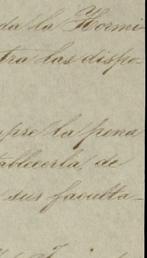 da la Hormi
tra las dispo-
pre la pena
tablecerla, de
sus faculta-